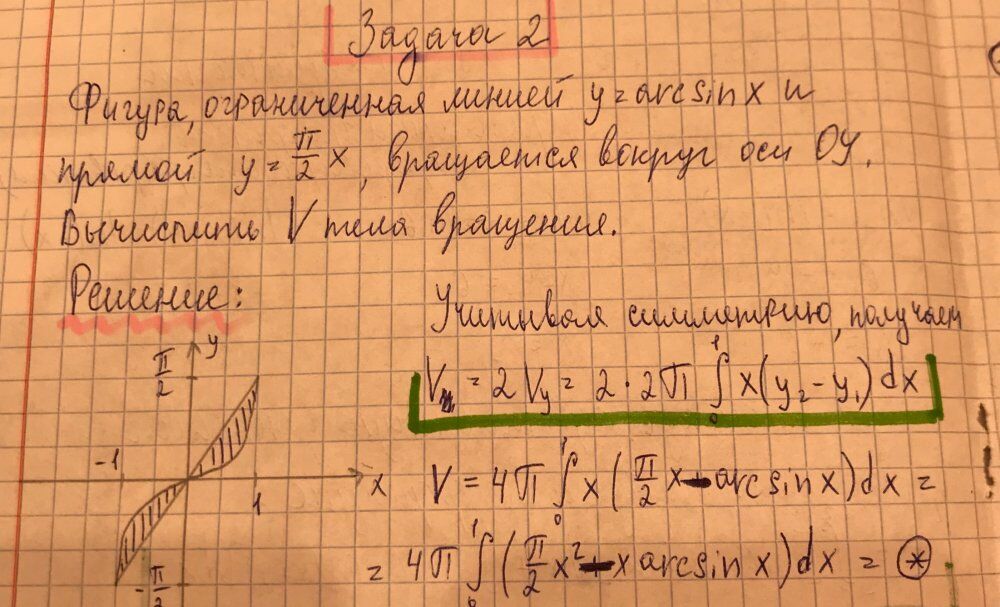 Задача 2
Фигура, ограниченная линией y = arcsin x и
прямой y = π/2 x, вращается вокруг оси OY.
Вычислить V тела вращения.
Решение:
Учитывая симметрию, получаем
V = 2 V_y = 2 · 2π ∫₀¹ x(y₂ - y₁) dx
V = 4π ∫₀¹ x (π/2 x - arcsin x) dx =
= 4π ∫₀¹ (π/2 x² - x arcsin x) dx = ⊛
π/2
y
-1
1
x
-π/2